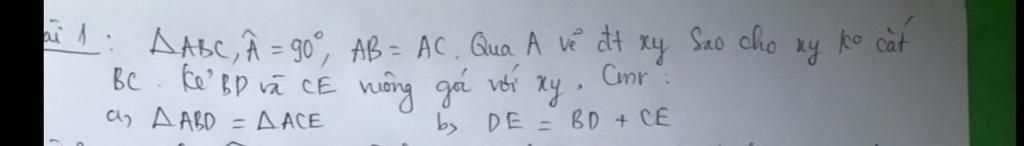 ài 1 : ΔABC, Â = 90°, AB = AC. Qua A vẽ đt xy sao cho xy ko cắt
BC. Kẻ BD và CE vuông góc với xy. Cmr :
a, ΔABD = ΔACE b, DE = BD + CE